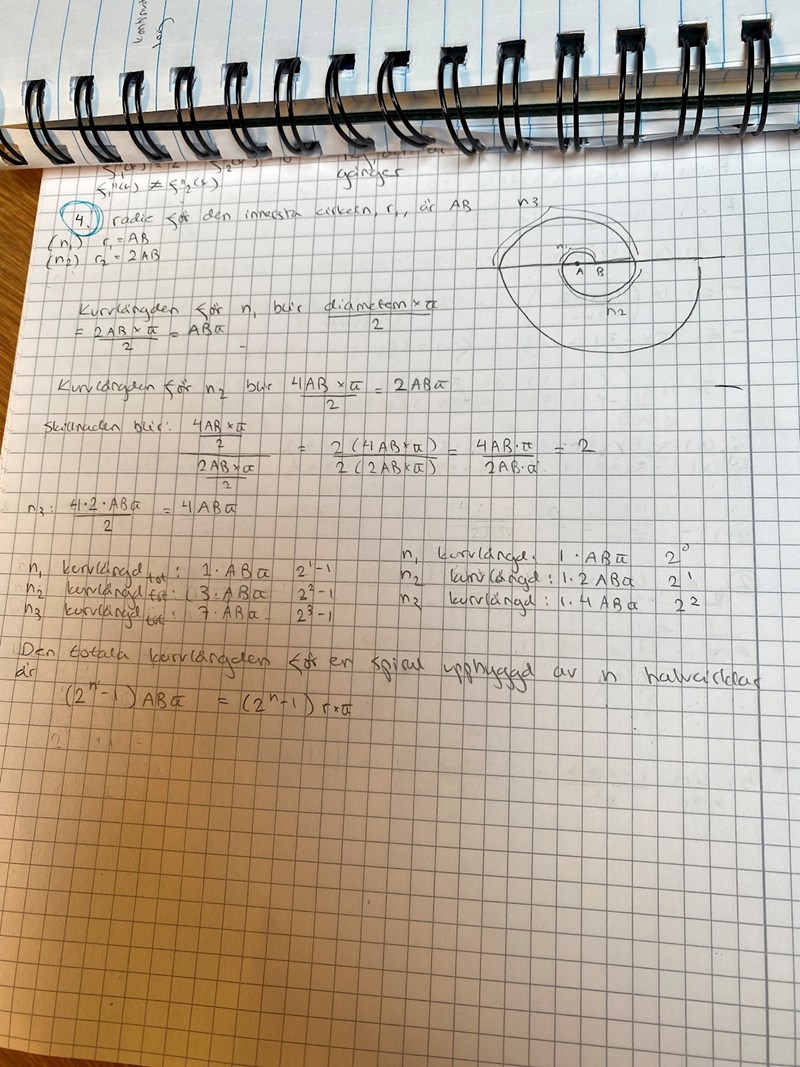 kontinu
log
gånger
4. radie för den innersta cirkeln, r₁, är AB
(n₁) r₁ = AB
(n₂) r₂ = 2AB
n3
n₁
A B
n2
Kurvlängden för n₁ blir diametern × π / 2
= 2AB × π / 2 = ABπ
Kurvlängden för n₂ blir 4AB × π / 2 = 2ABπ
Skillnaden blir: (4AB × π / 2) / (2AB × π / 2) = 2(4AB × π) / 2(2AB × π) = 4AB · π / 2AB · π = 2
n₃: 4 · 2 · ABπ / 2 = 4ABπ
n₁ kurvlängd tot : 1 · ABπ 2¹-1
n₂ kurvlängd tot : 3 · ABπ 2²-1
n₃ kurvlängd tot : 7 · ABπ 2³-1
n₁ kurvlängd: 1 · ABπ 2⁰
n₂ kurvlängd : 1 · 2 ABπ 2¹
n₃ kurvlängd : 1 · 4 ABπ 2²
Den totala kurvlängden för en spiral uppbyggd av n halvcirklar
är
(2ⁿ-1) ABπ = (2ⁿ-1) r × π